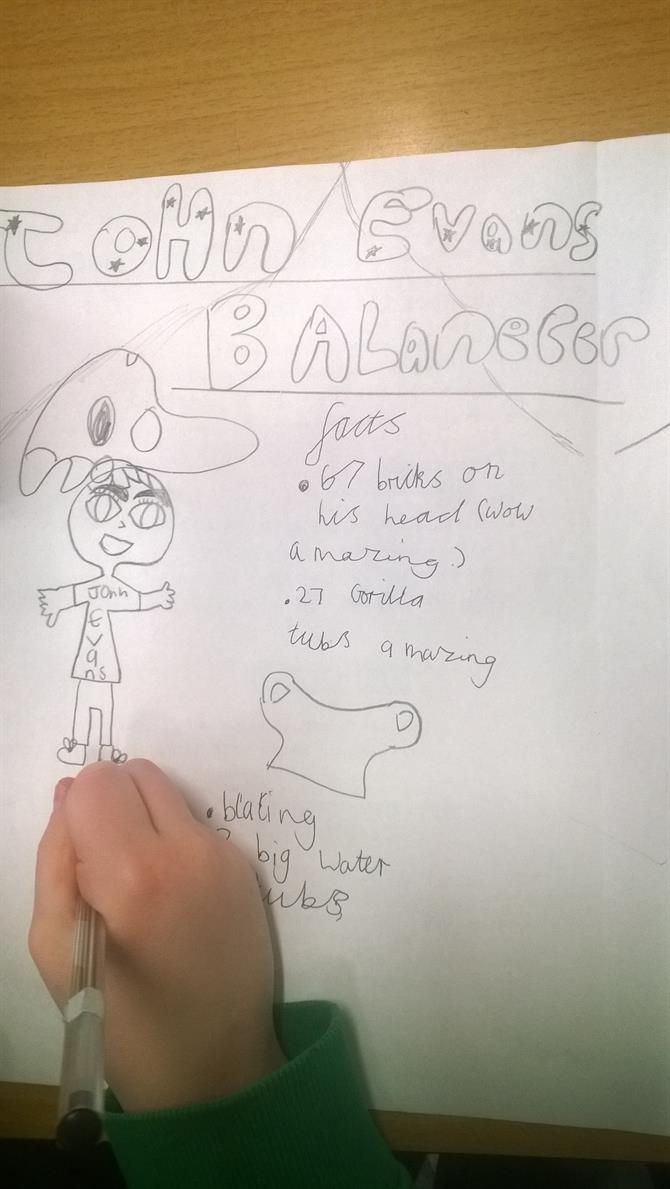 JoHn Evans
BALancerer
facts
• 67 briks on
his head (wow
amazing.)
• 27 Gorilla
tubs amazing
John
E
v
a
ns
big water
tubs